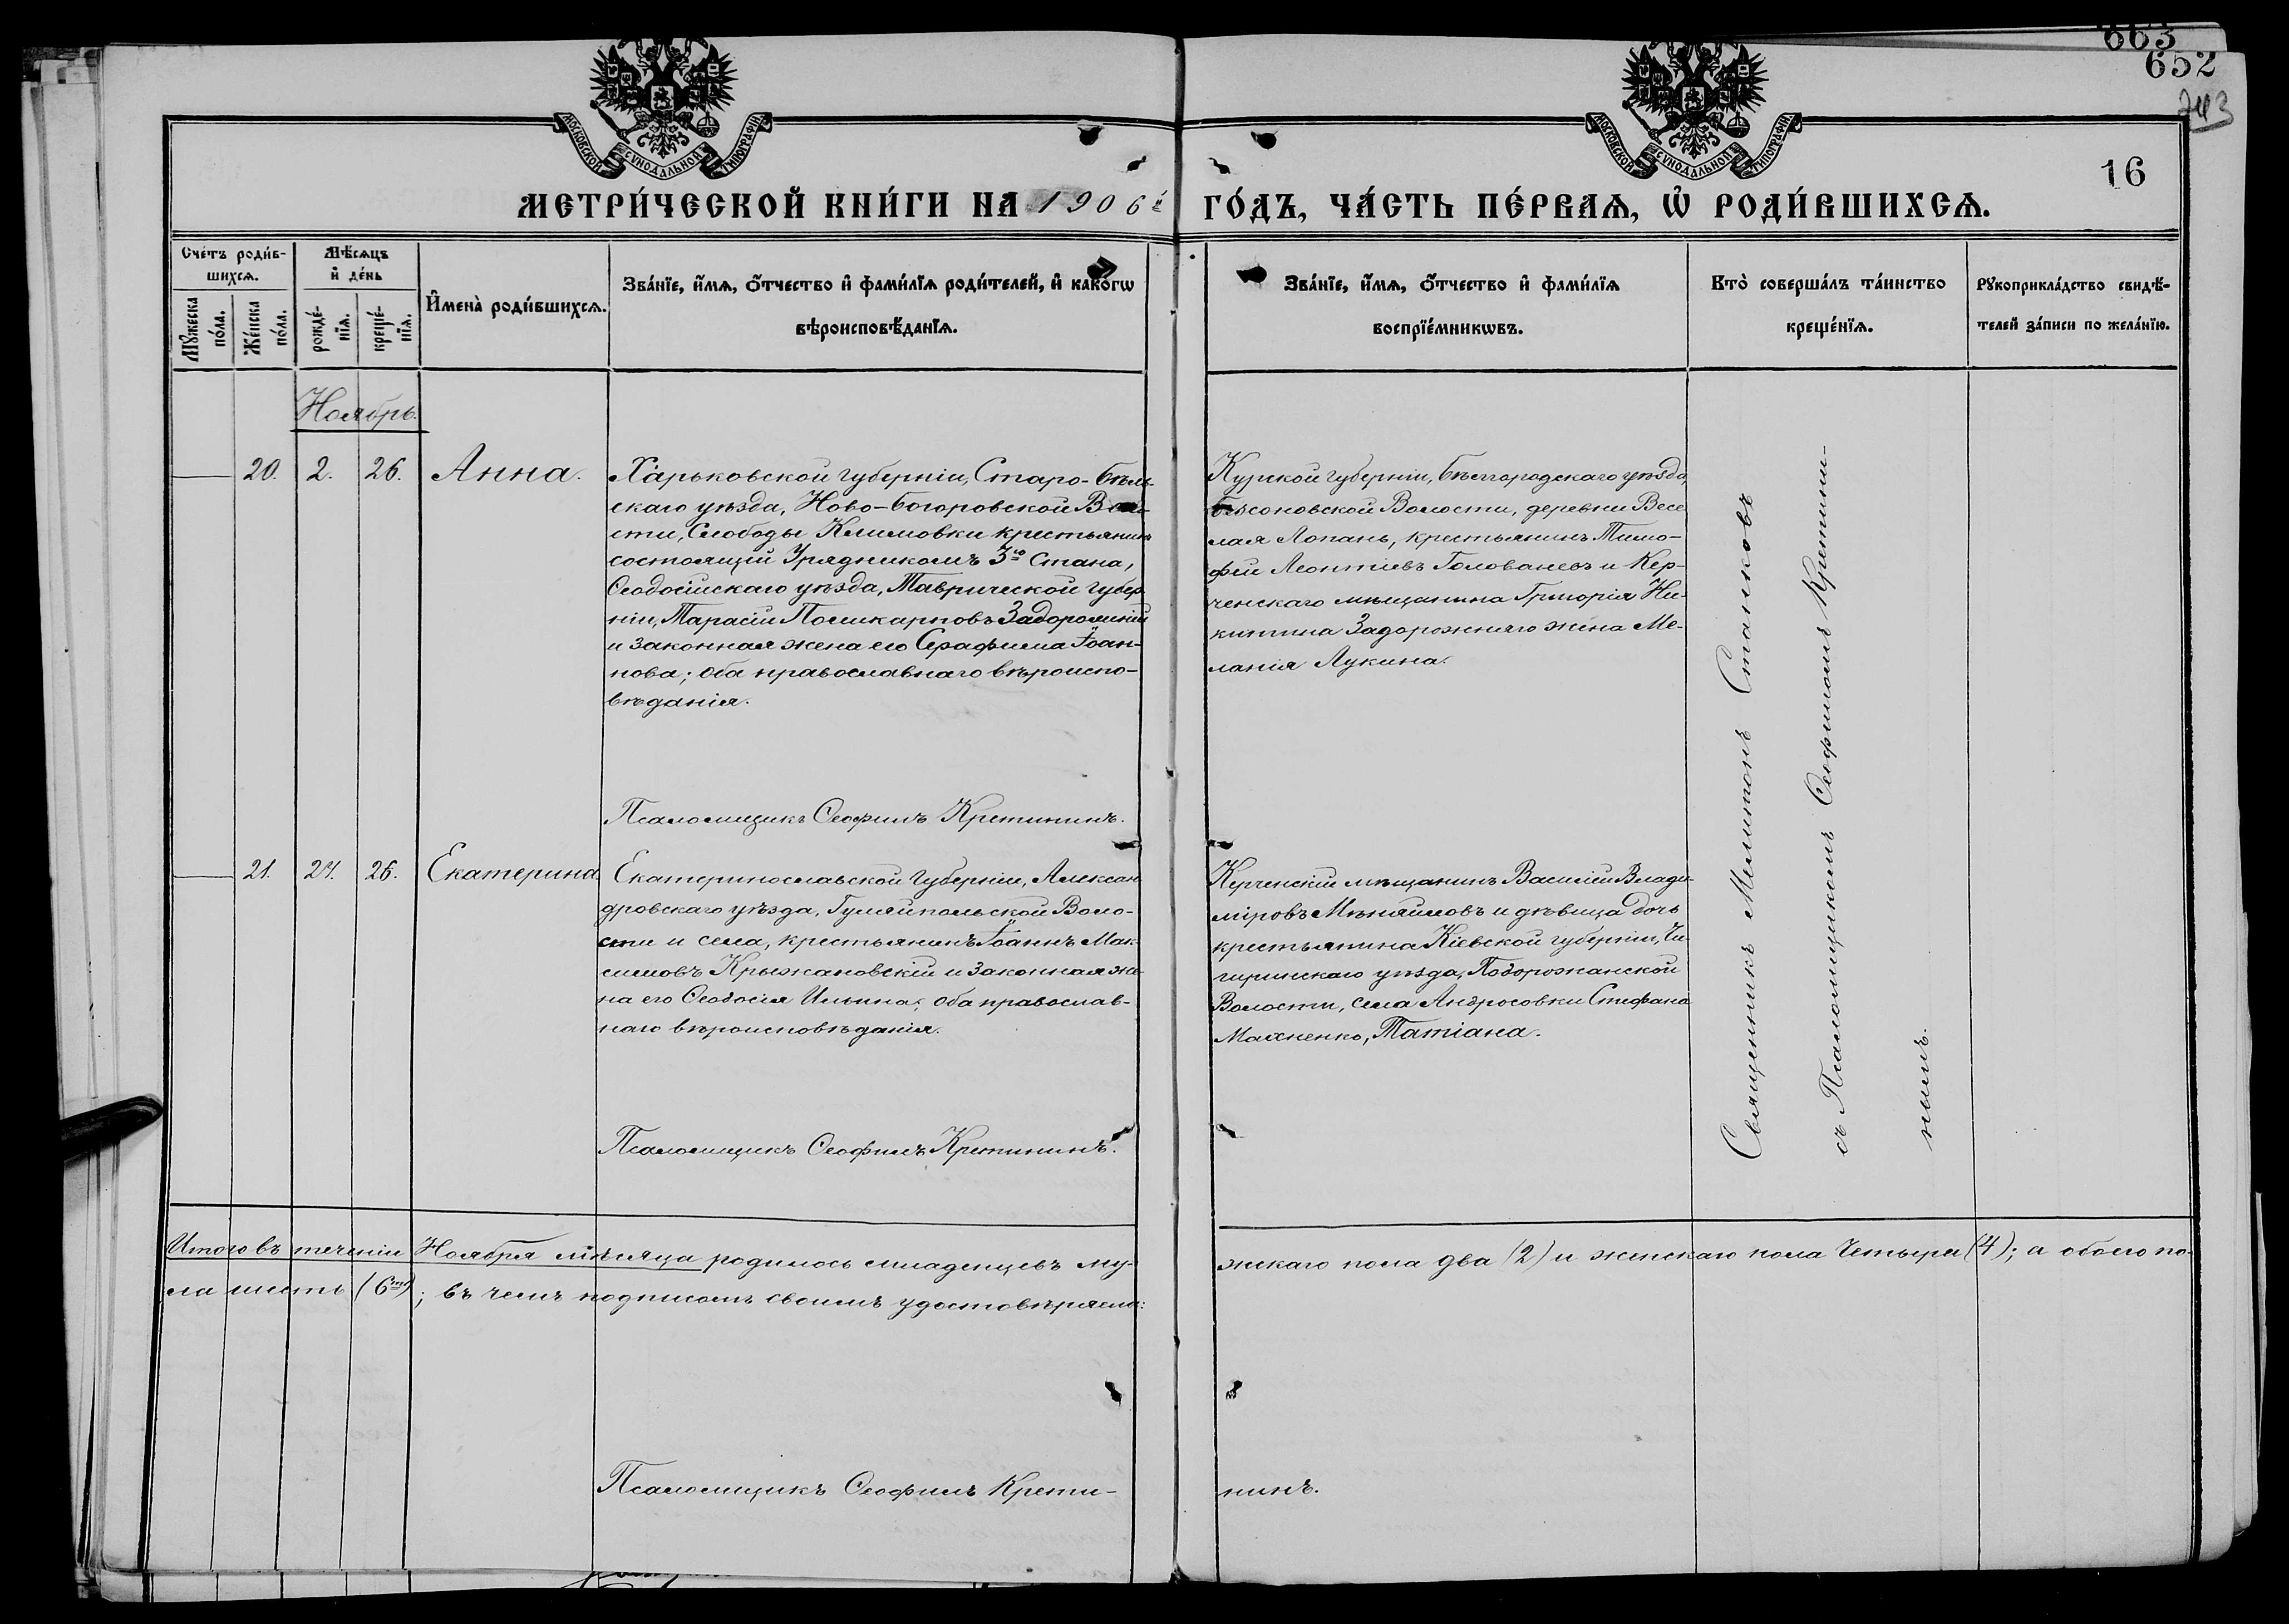 663
652
743
16
МОСКОВСКОЙ СѴНОДАЛЬНОЙ ТИПОГРАФІИ
МОСКОВСКОЙ СѴНОДАЛЬНОЙ ТИПОГРАФІИ
МЕТРИ́ЧЕСКОЙ КНИ́ГИ НА 1906й ГО́ДЪ, ЧА́СТЬ ПЕ́РВАѦ, Ѡ҆ РОДИ́ВШИХСѦ.
Сче́тъ роди́в-
шихсѧ.
Мꙋ́жеска
по́ла.
Же́нска
по́ла.
Мѣ́сѧцъ
и҆ де́нь
рожде́-
нїѧ.
креще́-
нїѧ.
И҆мена̀ роди́вшихсѧ.
Зва́нїе, и҆́мѧ, ѻ҆́тчество и҆ фами́лїѧ роди́телей, и҆ како́гѡ
вѣроисповѣ́данїѧ.
Зва́нїе, и҆́мѧ, ѻ҆́тчество и҆ фами́лїѧ
воспрїе́мникѡвъ.
Кто̀ соверша́лъ та́инство
креще́нїѧ.
Рꙋкоприкла́дство свидѣ́-
телей за́писи по жела́нїю.
Ноябрь.
20. 2. 26. Анна.
Харьковской губерніи, Старо-бѣль-
скаго уѣзда, Ново-богоровской Воло-
сти, Слободы Климовки крестьянинъ
состоящій Урядникомъ 3го Стана,
Ѳеодосійскаго уѣзда, Таврической губер-
ніи, Тарасій Поликарповъ Задорожній
и законная жена его Серафима Іоан-
нова; оба православнаго вѣроиспо-
вѣданія.
Псаломщикъ Ѳеофилъ Кретининъ.
Курской губерніи, бѣлгородскаго уѣзда,
бѣсоновской Волости, деревни Весе
лая Лопань, крестьянинъ Тимо-
фей Леонтіевъ Голованевъ и Кер-
ченскаго мѣщанина Григорія Ни-
китина Задорожняго жена Ме-
ланія Лукина.
21. 24. 26. Екатерина
Екатеринославской губерніи, Алексан
дровскаго уѣзда, Гуляйпольской Воло-
сти и села, крестьянинъ Іоаннъ Мак-
симовъ Крыжановскій и законная же-
на его Ѳеодосія Ильина; оба православ-
наго вѣроисповѣданія.
Псаломщикъ Ѳеофилъ Кретининъ.
Керченскій мѣщанинъ Василій Влади-
міровъ Мѣняйловъ и дѣвица дочь
крестьянина Кіевской губерніи, Чи-
гиринскаго уѣзда, Подорожанской
Волости, села Андросовки Стефана
Махненко, Татіана.
Священникъ Мелитонъ Станковъ
съ Псаломщикомъ Ѳеофиломъ Кретини-
нымъ.
Итого въ теченіи Ноября мѣсяца родилось младенцевъ му-
жскаго пола два (2) и женскаго пола Четыре (4); а обоего по-
ла шесть (6ть); въ чемъ подписомъ своимъ удостовѣряемъ:
Псаломщикъ Ѳеофилъ Крети-
нинъ.